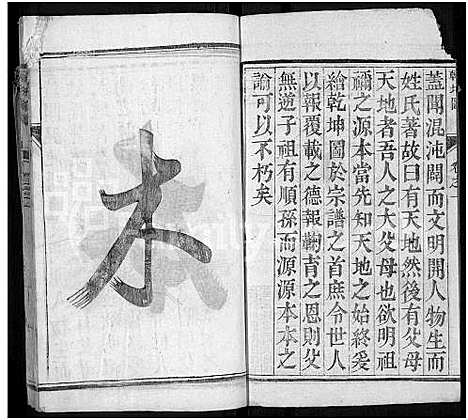 乾坤圖 卷之一
蓋聞混沌闢而文明開人物生而
姓氏著故曰有天地然後有父母
天地者吾人之大父母也欲明祖
禰之源本當先知天地之始終爰
繪乾坤圖於宗譜之首庶令世人
以報覆載之德報鞠育之恩則父
無逆子祖有順孫而源源本本之
諭可以不朽矣
本